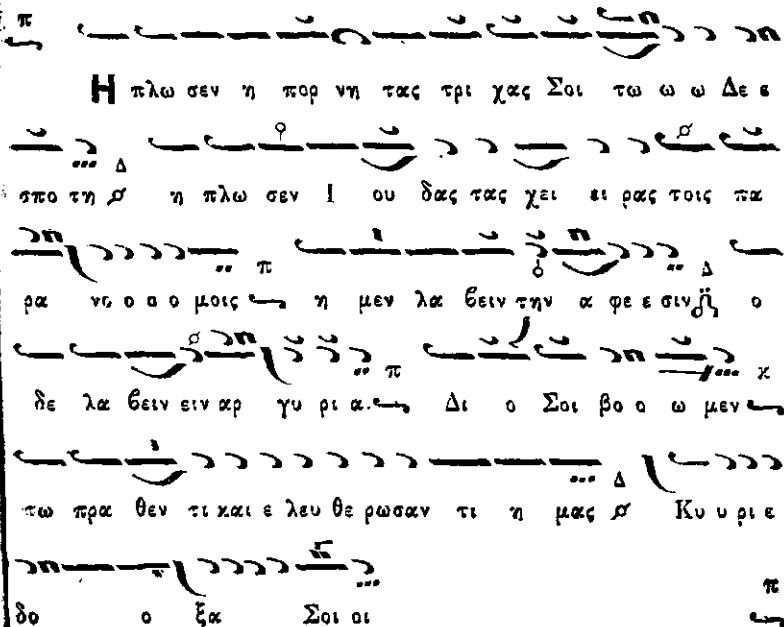 π
Η πλω σεν η πορ νη τας τρι χας Σοι τω ω ω Δε ε
Δ
σπο τη η πλω σεν Ι ου δας τας χει ει ρας τοις πα
π Δ
ρα νο ο ο ο μοις η μεν λα βειν την α φε ε σιν ο
π κ
δε λα βειν ειν αρ γυ ρι α. Δι ο Σοι βο ο ω μεν
Δ
τω πρα θεν τι και ε λευ θε ρωσαν τι η μας Κυ υ ρι ε
π
δο ο ξα Σοι οι